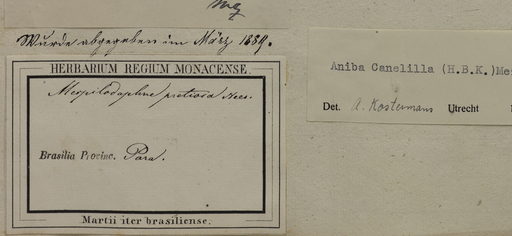 Wurde abgegeben im März 1889.
HERBARIUM REGIUM MONACENSE.
Mespilodaphne pretiosa Nees.
Brasilia Provinc. Para.
Martii iter brasiliense.
Aniba Canelilla (H.B.K.) Me
Det. A. Kostermans Utrecht